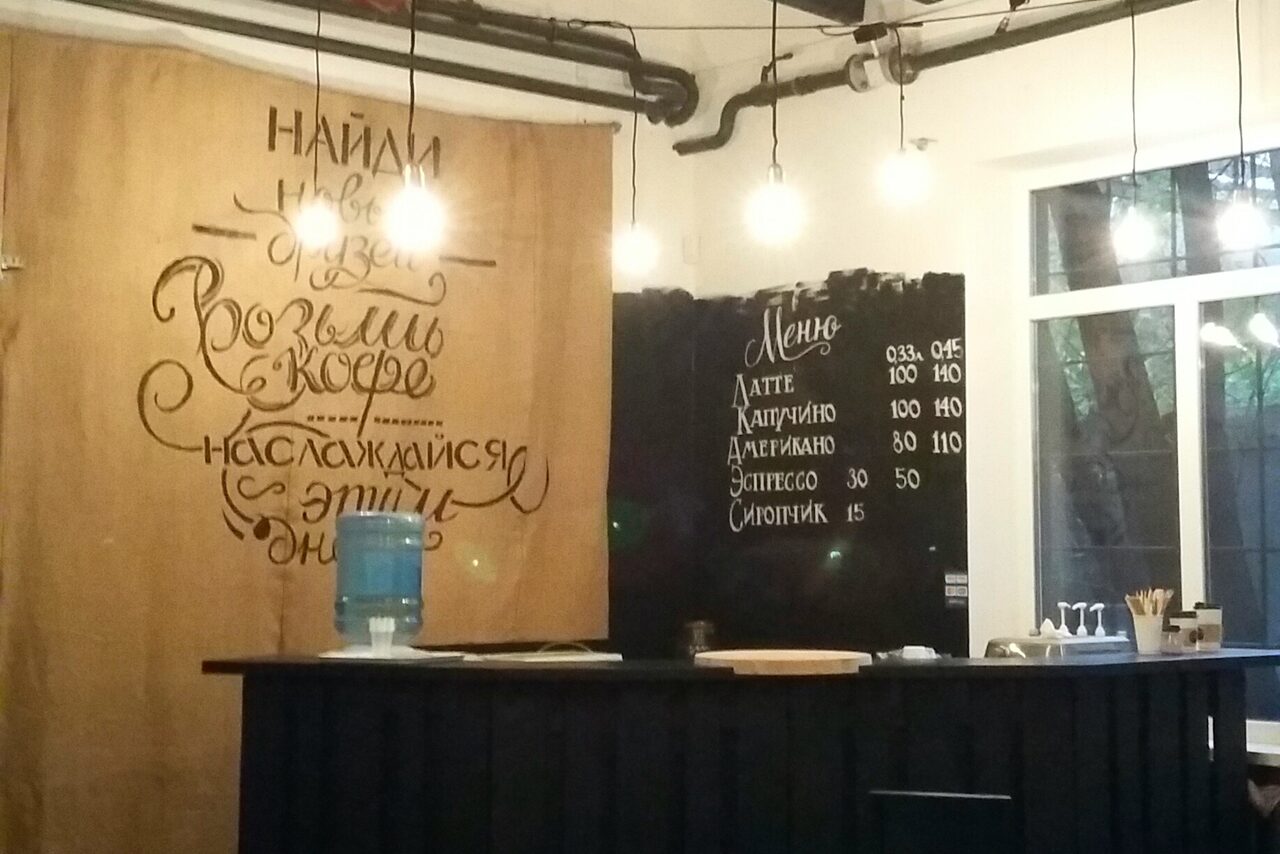 НАЙДИ
друзей
Возьми
кофе
НАСЛАЖДАЙСЯ
этим
Меню
0,33л 0,45
ЛАТТЕ 100 140
КАПУЧИНО 100 140
АМЕРИКАНО 80 110
ЭСПРЕССО 30 50
СИРОПЧИК 15